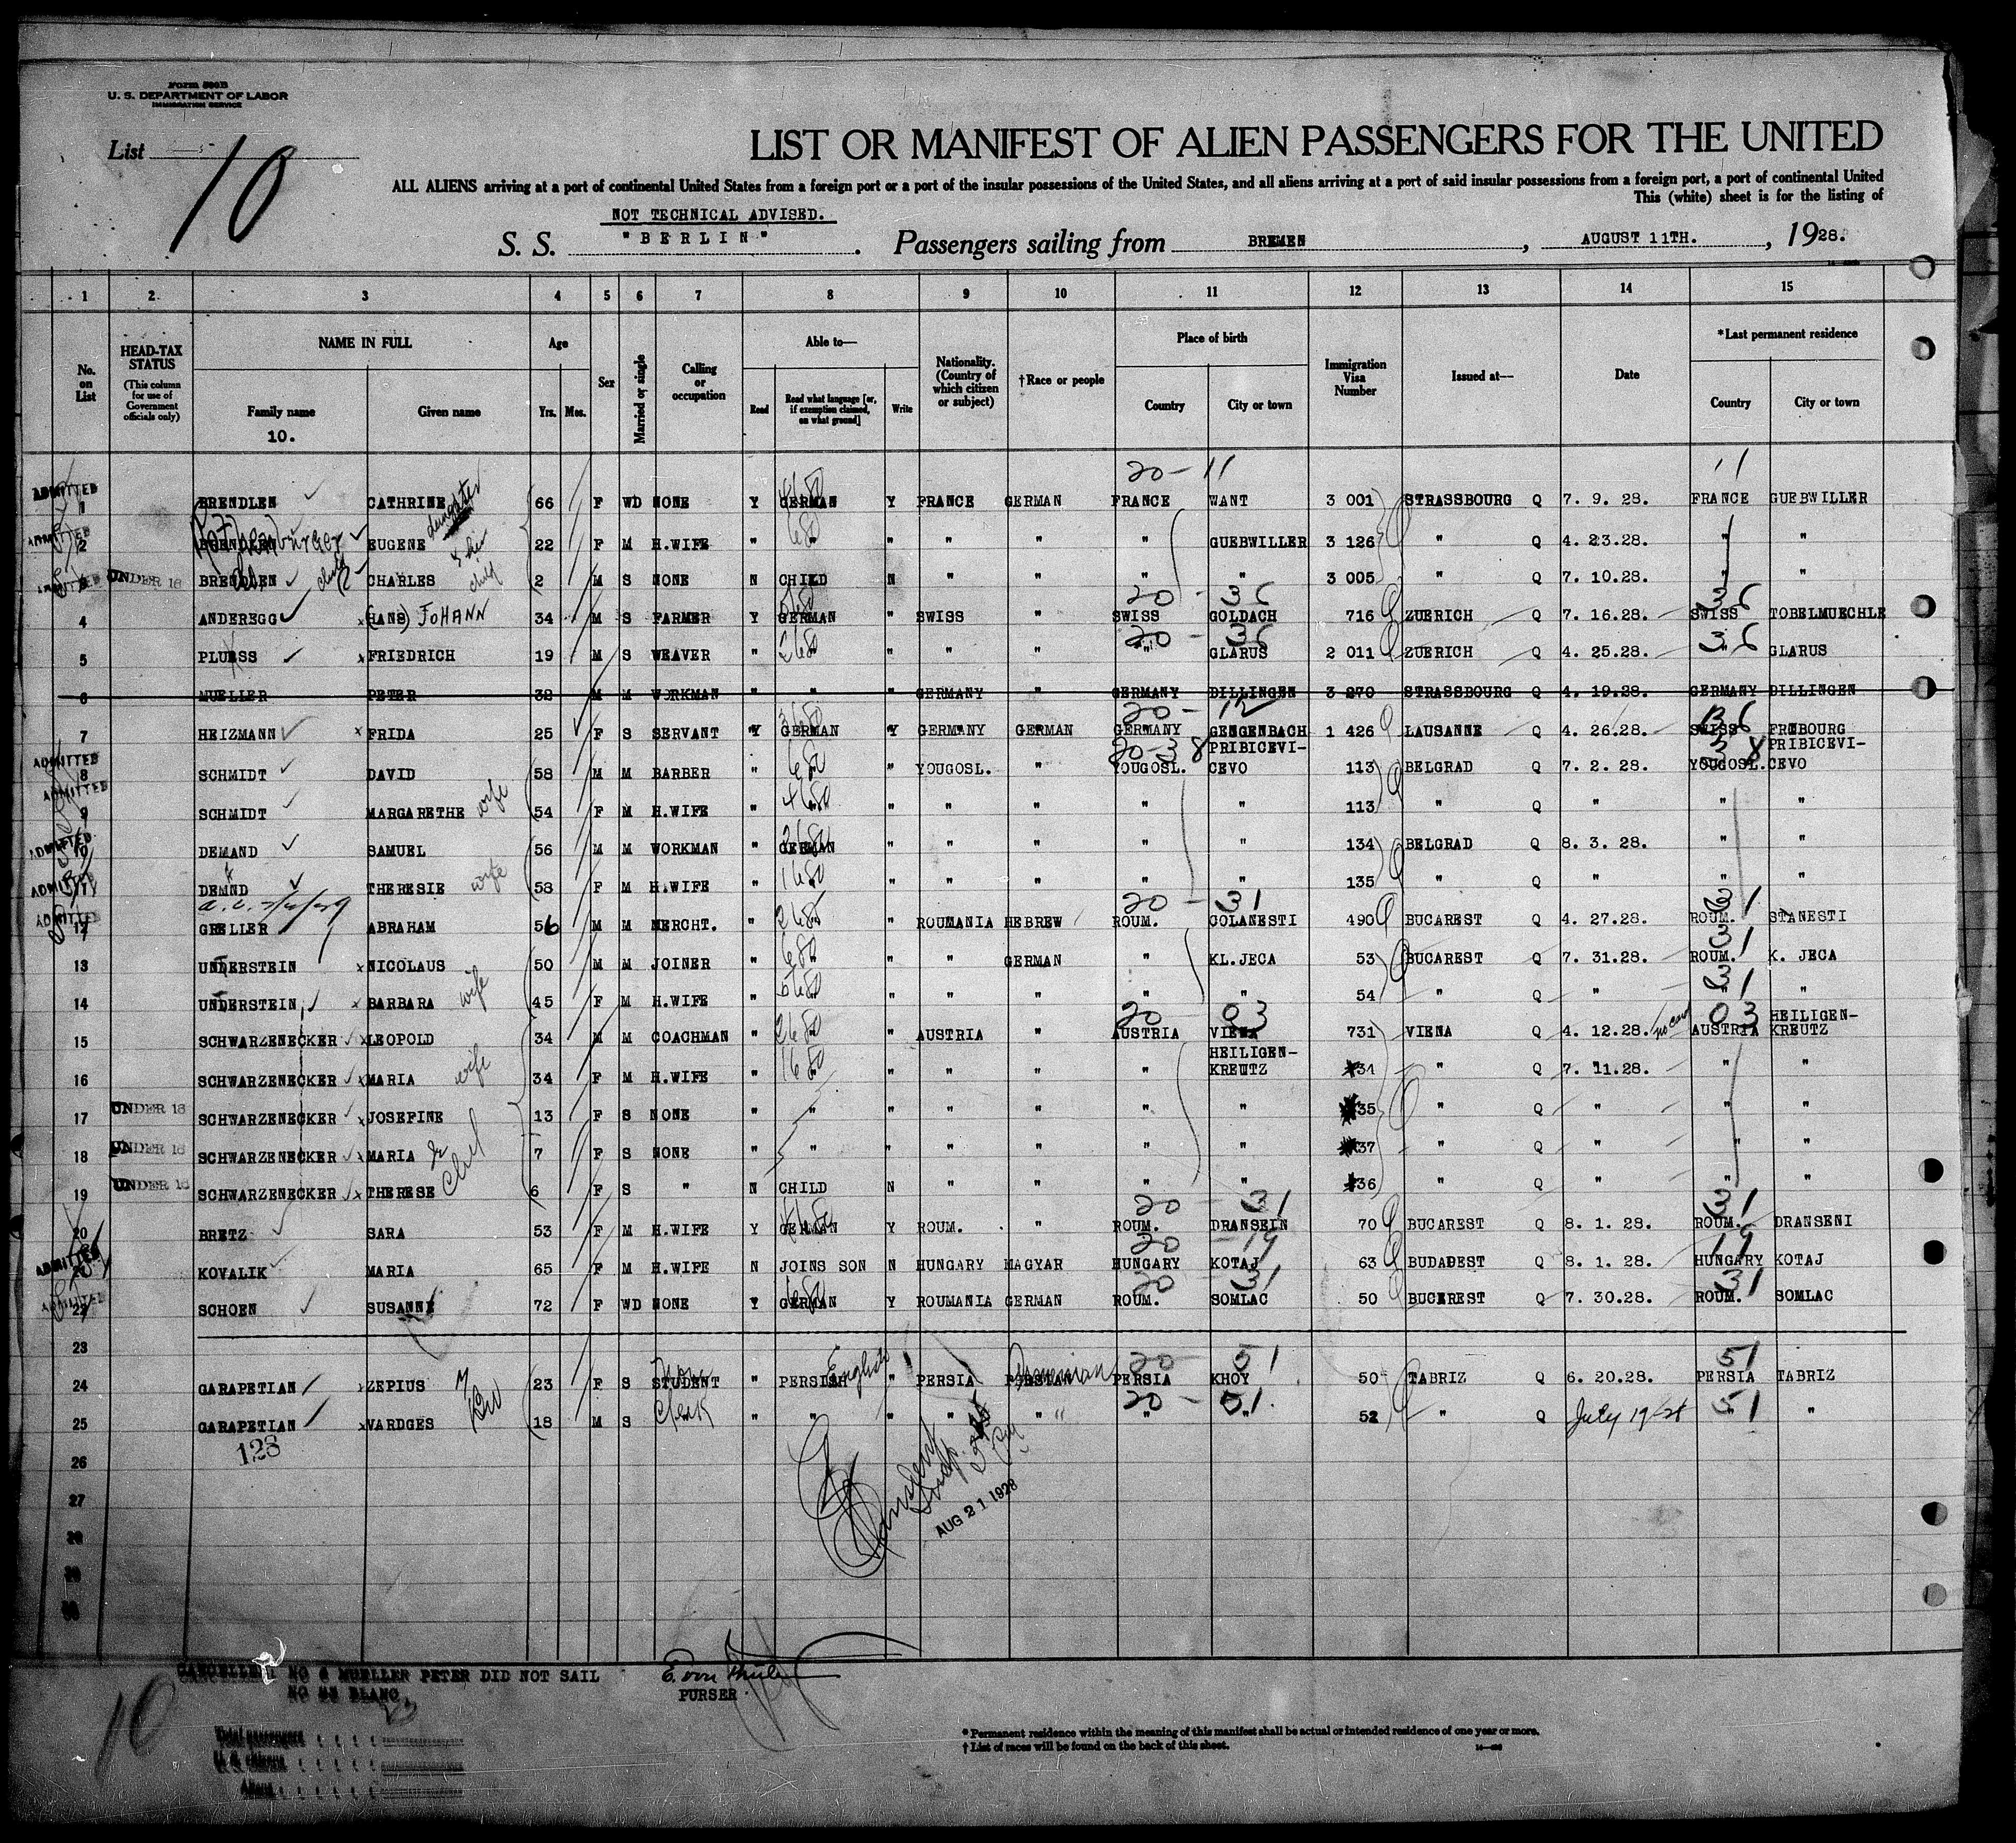 Form 500B
U. S. DEPARTMENT OF LABOR
IMMIGRATION SERVICE
List 5
10
LIST OR MANIFEST OF ALIEN PASSENGERS FOR THE UNITED
ALL ALIENS arriving at a port of continental United States from a foreign port or a port of the insular possessions of the United States, and all aliens arriving at a port of said insular possessions from a foreign port, a port of continental United
This (white) sheet is for the listing of
NOT TECHNICAL ADVISED.
S. S. "BERLIN". Passengers sailing from BREMEN, AUGUST 11TH., 1928.
1 2 3 4 5 6 7 8 9 10 11 12 13 14 15
No. on List
HEAD-TAX STATUS (This column for use of Government officials only)
NAME IN FULL
Family name
Given name
10.
Age
Yrs. Mos.
Sex
Married or single
Calling or occupation
Able to—
Read
Read what language [or, if exemption claimed, on what ground]
Write
Nationality. (Country of which citizen or subject)
†Race or people
Place of birth
Country
City or town
Immigration Visa Number
Issued at—
Date
*Last permanent residence
Country
City or town
20 - 11 11
ADMITTED 1 BRENDLEN CATHRINE 66 F WD NONE Y GERMAN Y FRANCE GERMAN FRANCE WANT 3 001 STRASSBOURG Q 7. 9. 28. FRANCE GUEBWILLER
daughter
ADMITTED 2 EUGENE & her 22 F M H.WIFE " " " " " " GUEBWILLER 3 126 " Q 4. 23.28. " "
3 UNDER 16 BRENDLEN child CHARLES child 2 M S NONE N CHILD N " " " " 3 005 " Q 7. 10.28. " "
20 - 36 36
4 ANDEREGG x(HANS) JOHANN 34 M S FARMER Y GERMAN " SWISS " SWISS GOLDACH 716 ZUERICH Q 7. 16.28. SWISS TOBELMUECHLE
20 - 36 36
5 PLUESS xFRIEDRICH 19 M S WEAVER " " " " " " GLARUS 2 011 ZUERICH Q 4. 25.28. " GLARUS
6 MUELLER PETER 38 M M WORKMAN " " " GERMANY " GERMANY DILLINGEN 3 270 STRASSBOURG Q 4. 19.28. GERMANY DILLINGEN
20 - 12 36
7 HEIZMANN xFRIDA 25 F S SERVANT Y GERMAN Y GERMANY GERMAN GERMANY GENGENBACH 1 426 LAUSANNE Q 4. 26.28. SWISS FRIBOURG
20-38 PRIBICEVI- 38 PRIBICEVI-
ADMITTED 8 SCHMIDT DAVID 58 M M BARBER " " " YOUGOSL. " YOUGOSL. CEVO 113 BELGRAD Q 7. 2. 28. YOUGOSL. CEVO
ADMITTED 9 SCHMIDT MARGARETHE wife 54 F M H.WIFE " " " " " " " 113 " Q " " "
ADMITTED 10 DEMAND SAMUEL 56 M M WORKMAN " GERMAN " " " " " 134 BELGRAD Q 8. 3. 28. " "
ADMITTED 11 DEMND THERESIE wife 58 F M H.WIFE " " " " " " 135 " Q " " "
20 - 31 31
ADMITTED 12 GRELLER ABRAHAM 56 M M MERCHT. " " ROUMANIA HEBREW ROUM. GOLANESTI 490 BUCAREST Q 4. 27.28. ROUM. STANESTI
31
13 UNDERSTEIN xNICOLAUS 50 M M JOINER " " " " GERMAN " KL.JECA 53 BUCAREST Q 7. 31.28. ROUM. K. JECA
31
14 UNDERSTEIN xBARBARA wife 45 F M H.WIFE " " " " " " " 54 " Q " " "
20 03 03 HEILIGEN-
15 SCHWARZENECKER xLEOPOLD 34 M M COACHMAN " " AUSTRIA " AUSTRIA VIENA 731 VIENA Q 4. 12.28. AUSTRIA KREUTZ
HEILIGEN-
16 SCHWARZENECKER xMARIA wife 34 F M H.WIFE " " " " " " KREUTZ 34 " Q 7. 11.28. " "
17 UNDER 16 SCHWARZENECKER xJOSEFINE 13 F S NONE " " " " " " " 35 " Q " " "
18 UNDER 16 SCHWARZENECKER xMARIA 7 F S NONE " " " " " " " 37 " Q " " "
19 UNDER 16 SCHWARZENECKER xTHERESE 6 F S " N CHILD N " " " " 36 " Q " " "
20 - 31 31
20 BRETZ SARA 53 F M H.WIFE Y GERMAN Y ROUM. " ROUM. DRANSEIN 70 BUCAREST Q 8. 1. 28. ROUM. DRANSENI
20 - 19 19
ADMITTED 21 KOVALIK MARIA 65 F M H.WIFE N JOINS SON N HUNGARY MAGYAR HUNGARY KOTAJ 63 BUDAPEST Q 8. 1. 28. HUNGARY KOTAJ
20 31 31
ADMITTED 22 SCHOEN SUSANNE 72 F WD NONE Y GERMAN Y ROUMANIA GERMAN ROUM. SOMLAC 50 BUCEREST Q 7. 30.28. ROUM. SOMLAC
23
None English Armenian 20 - 51 51
24 GARAPETIAN xZEPIUS 23 F S STUDENT " PERSISH " PERSIA PERSIAN PERSIA KHOY 50 TABRIZ Q 6. 20.28. PERSIA TABRIZ
20 - 51. 51
25 GARAPETIAN xVARDGES 18 M S Clerk " " " " " " " 52 " Q July 19-28 " "
128
26
27
28
29
30
AUG 21 1928
CANCELLED NO 6 MUELLER PETER DID NOT SAIL
NO 23 BLANC.
PURSER
10
Total passengers
U. S. citizens
Aliens
* Permanent residence within the meaning of this manifest shall be actual or intended residence of one year or more.
† List of races will be found on the back of this sheet.